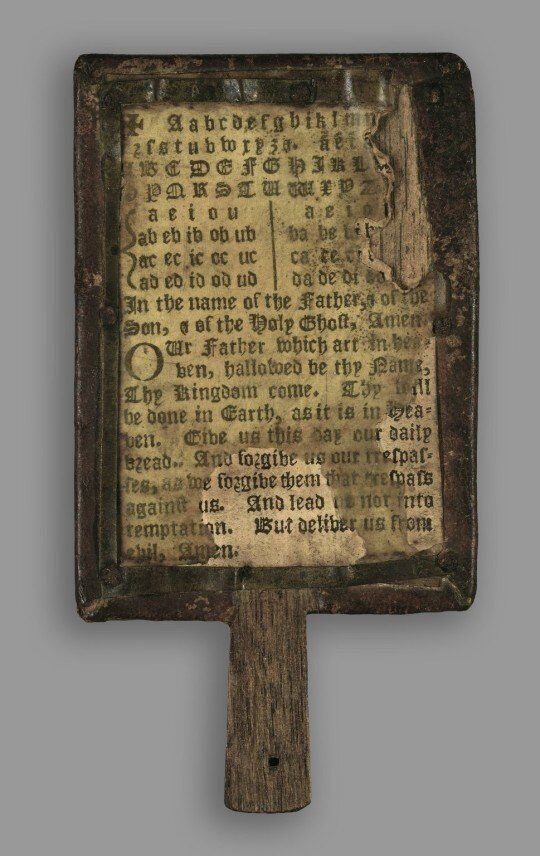 ✠ Aabcdefghiklmn
rſstuvwxyz. aei
BCDEFGHIKL
PQRSTUWXYZ
a e i o u a e i o
ab eb ib ob ub ba be bi
ac ec ic oc uc ca ce ci
ad ed id od ud da de di
In the name of the Father, & of the
Son, & of the Holy Ghoſt, Amen.
OUr Father which art in hea-
ven, hallowed be thy Name,
Thy Kingdom come. Thy will
be done in Earth, as it is in Hea-
ven. Give us this day our daily
bread. And forgive us our treſpaſ-
ſes, as we forgive them that treſpaſs
againſt us. And lead us not into
temptation. But deliver us from
evil, Amen.